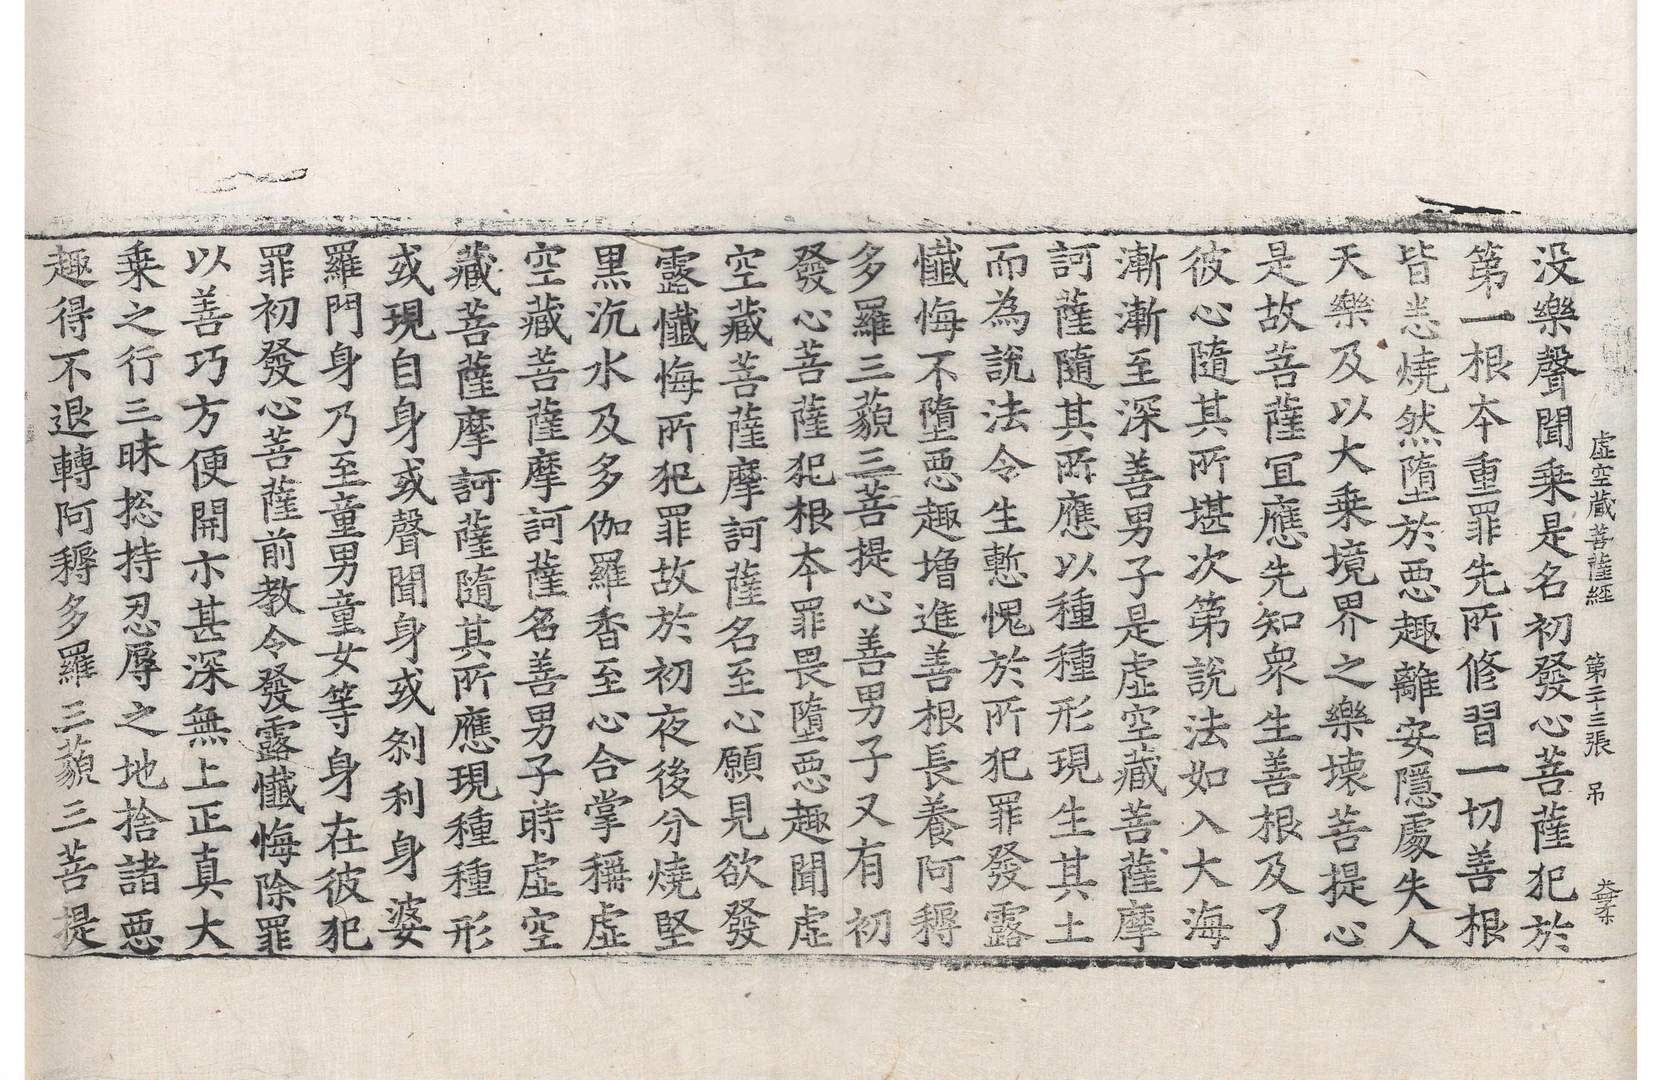 虛空藏菩薩經 第二十三張 吊
没樂聲聞乗是名初發心菩薩犯於
第一根本重罪先所修習一切善根
皆悉燒然墮於惡趣離安隱處失人
天樂及以大乗境界之樂壊菩提心
是故菩薩冝應先知衆生善根及了
彼心隨其所堪次第說法如入大海
漸漸至深善男子是虛空藏菩薩摩
訶薩隨其所應以種種形現生其土
而為說法令生慙愧於所犯罪發露
懺悔不墮惡趣增進善根長養阿耨
多羅三藐三菩提心善男子又有初
發心菩薩犯根本罪畏墮惡趣聞虛
空藏菩薩摩訶薩名至心願見欲發
露懺悔所犯罪故於初夜後分燒堅
黒沉水及多伽羅香至心合掌稱虛
空藏菩薩摩訶薩名善男子時虛空
藏菩薩摩訶薩隨其所應現種種形
或現自身或聲聞身或刹利身婆
羅門身乃至童男童女等身在彼犯
罪初發心菩薩前教令發露懺悔除罪
以善巧方便開示甚深無上正真大
乗之行三昧捴持忍辱之地捨諸惡
趣得不退轉阿耨多羅三藐三菩提